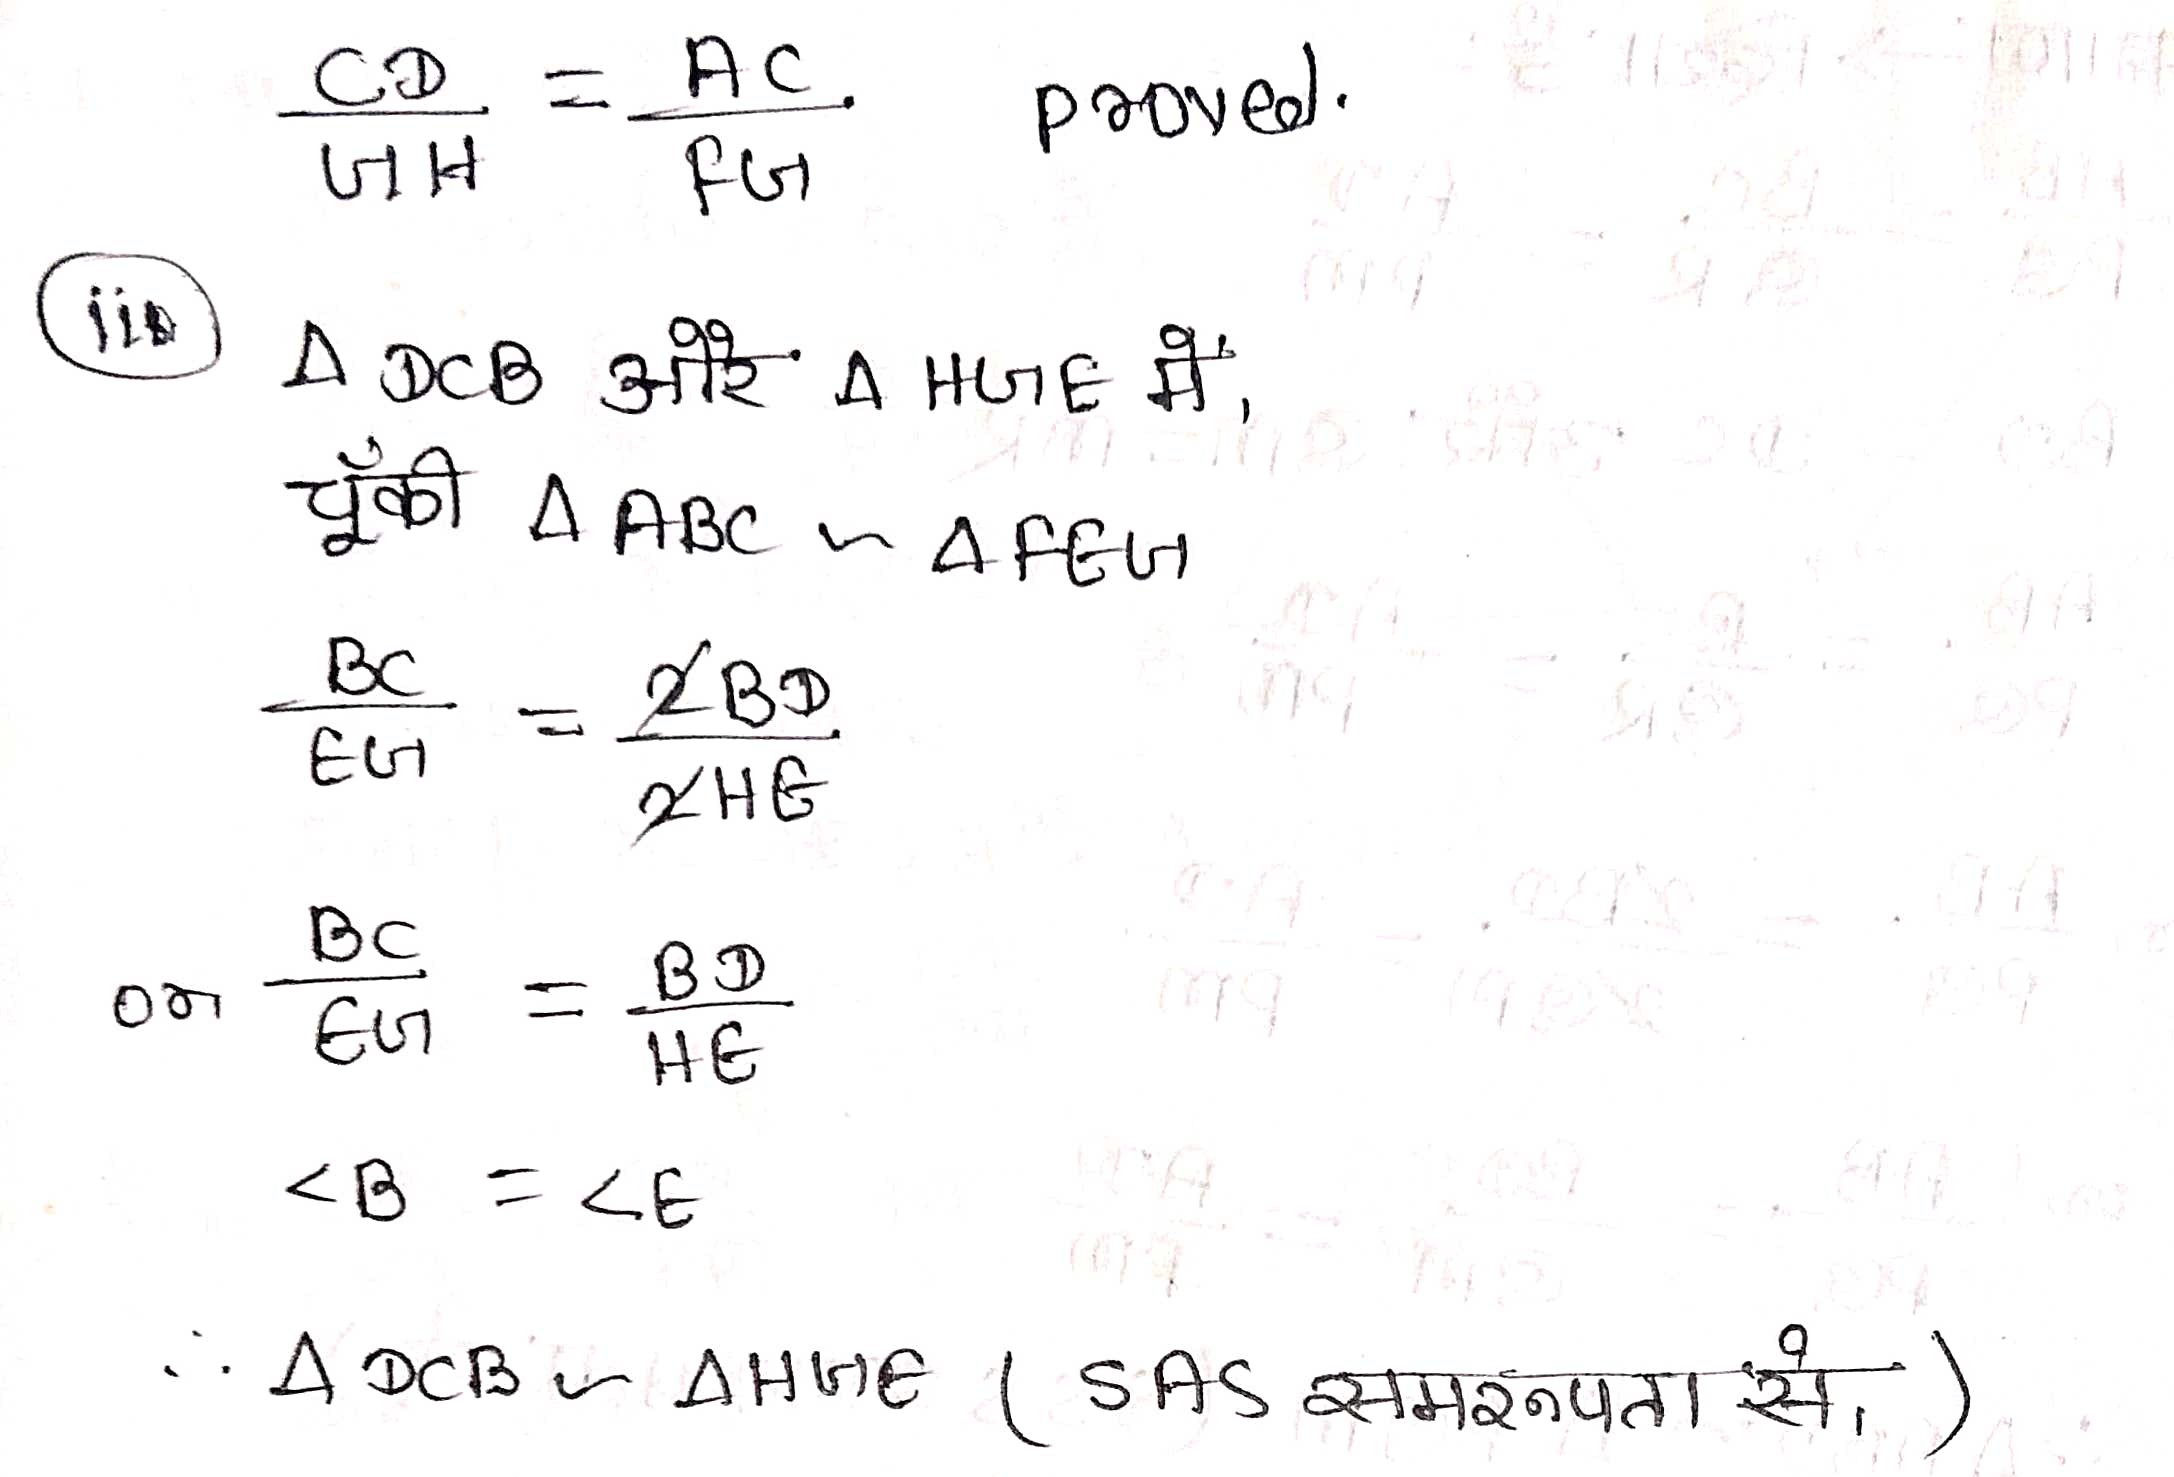 CD/GH = AC/FG proved.
(ii) Δ DCB और Δ HGE में,
चूँकी Δ ABC ~ Δ FEG
BC/EG = 2BD/2HE
or BC/EG = BD/HE
<B = <E
∴ Δ DCB ~ Δ HGE (SAS समरूपता से,)